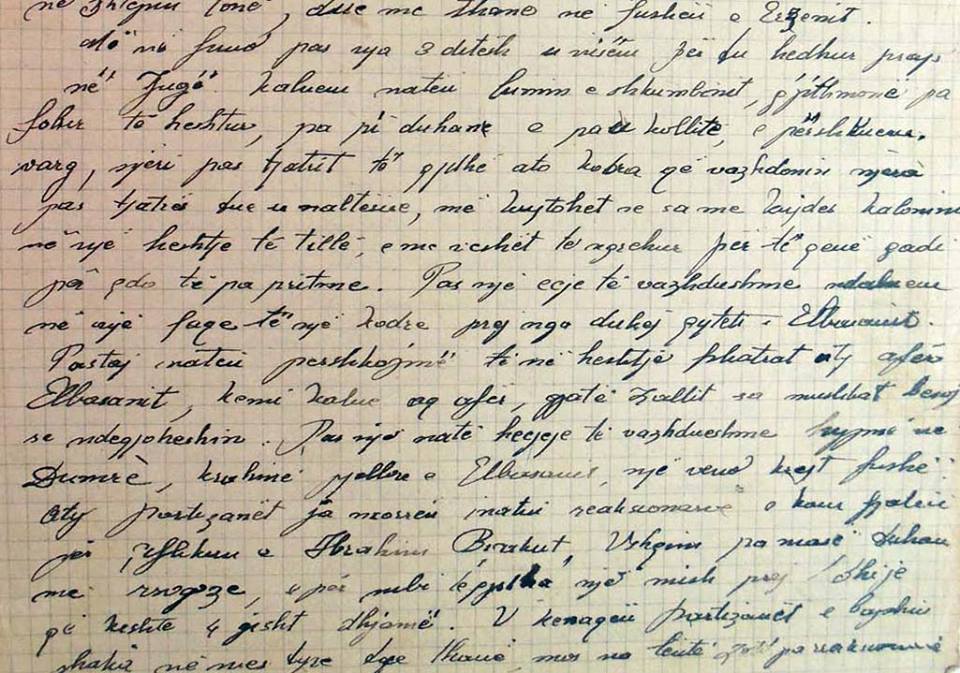 në Shqipni tonë, dhe me thanë në fushën e Erzenit.
Më në fund pas nja 3 ditësh u nisëm për tu hedhur prap
në Jugë. Kaluem natën lumin e Shkumbinit, gjithmonë pa
folur të heshtur, pa pi duhanë e pa u kollitë, e përshkuem
varg, njëri pas tjatrit të gjithë ato kodra që vazhdonin njëra
pas tjatrës tue u naltësue, më kujtohet se sa me kujdes kalonim
në një heshtje të tillë, e me veshët të ngrehur për të qenë gadi
për çdo të pa pritme. Pas një ecje të vazhdushme ndaluem
në një faqe të një kodre prej nga dukej qyteti i Elbasanit.
Pastaj natën përshkojmë të në heshtje fshatrat aty afër
Elbasanit, kemi kalue aq afër, gjatë Zallit sa mushkat
se ndegjoheshin. Pas një natë hecjeje të vazhdueshme hyjmë në
Dumrè, krahinë pjellore e Elbasanit, një vend krejt fushë
Aty partizanët ja morrën inatin reaksionarve e kaun fjalën
për çiflikun e Ibrahim Biçakut, Ushqim pa masë duhan
me rrogoze, e për mbi të gjitha një mish prej dhije
që kishte 4 gisht dhjamë. U kënaqën partizanët e bajshin
shaka në mes tyre tye thanë, mos na lentë Zoti pa reaksionarë